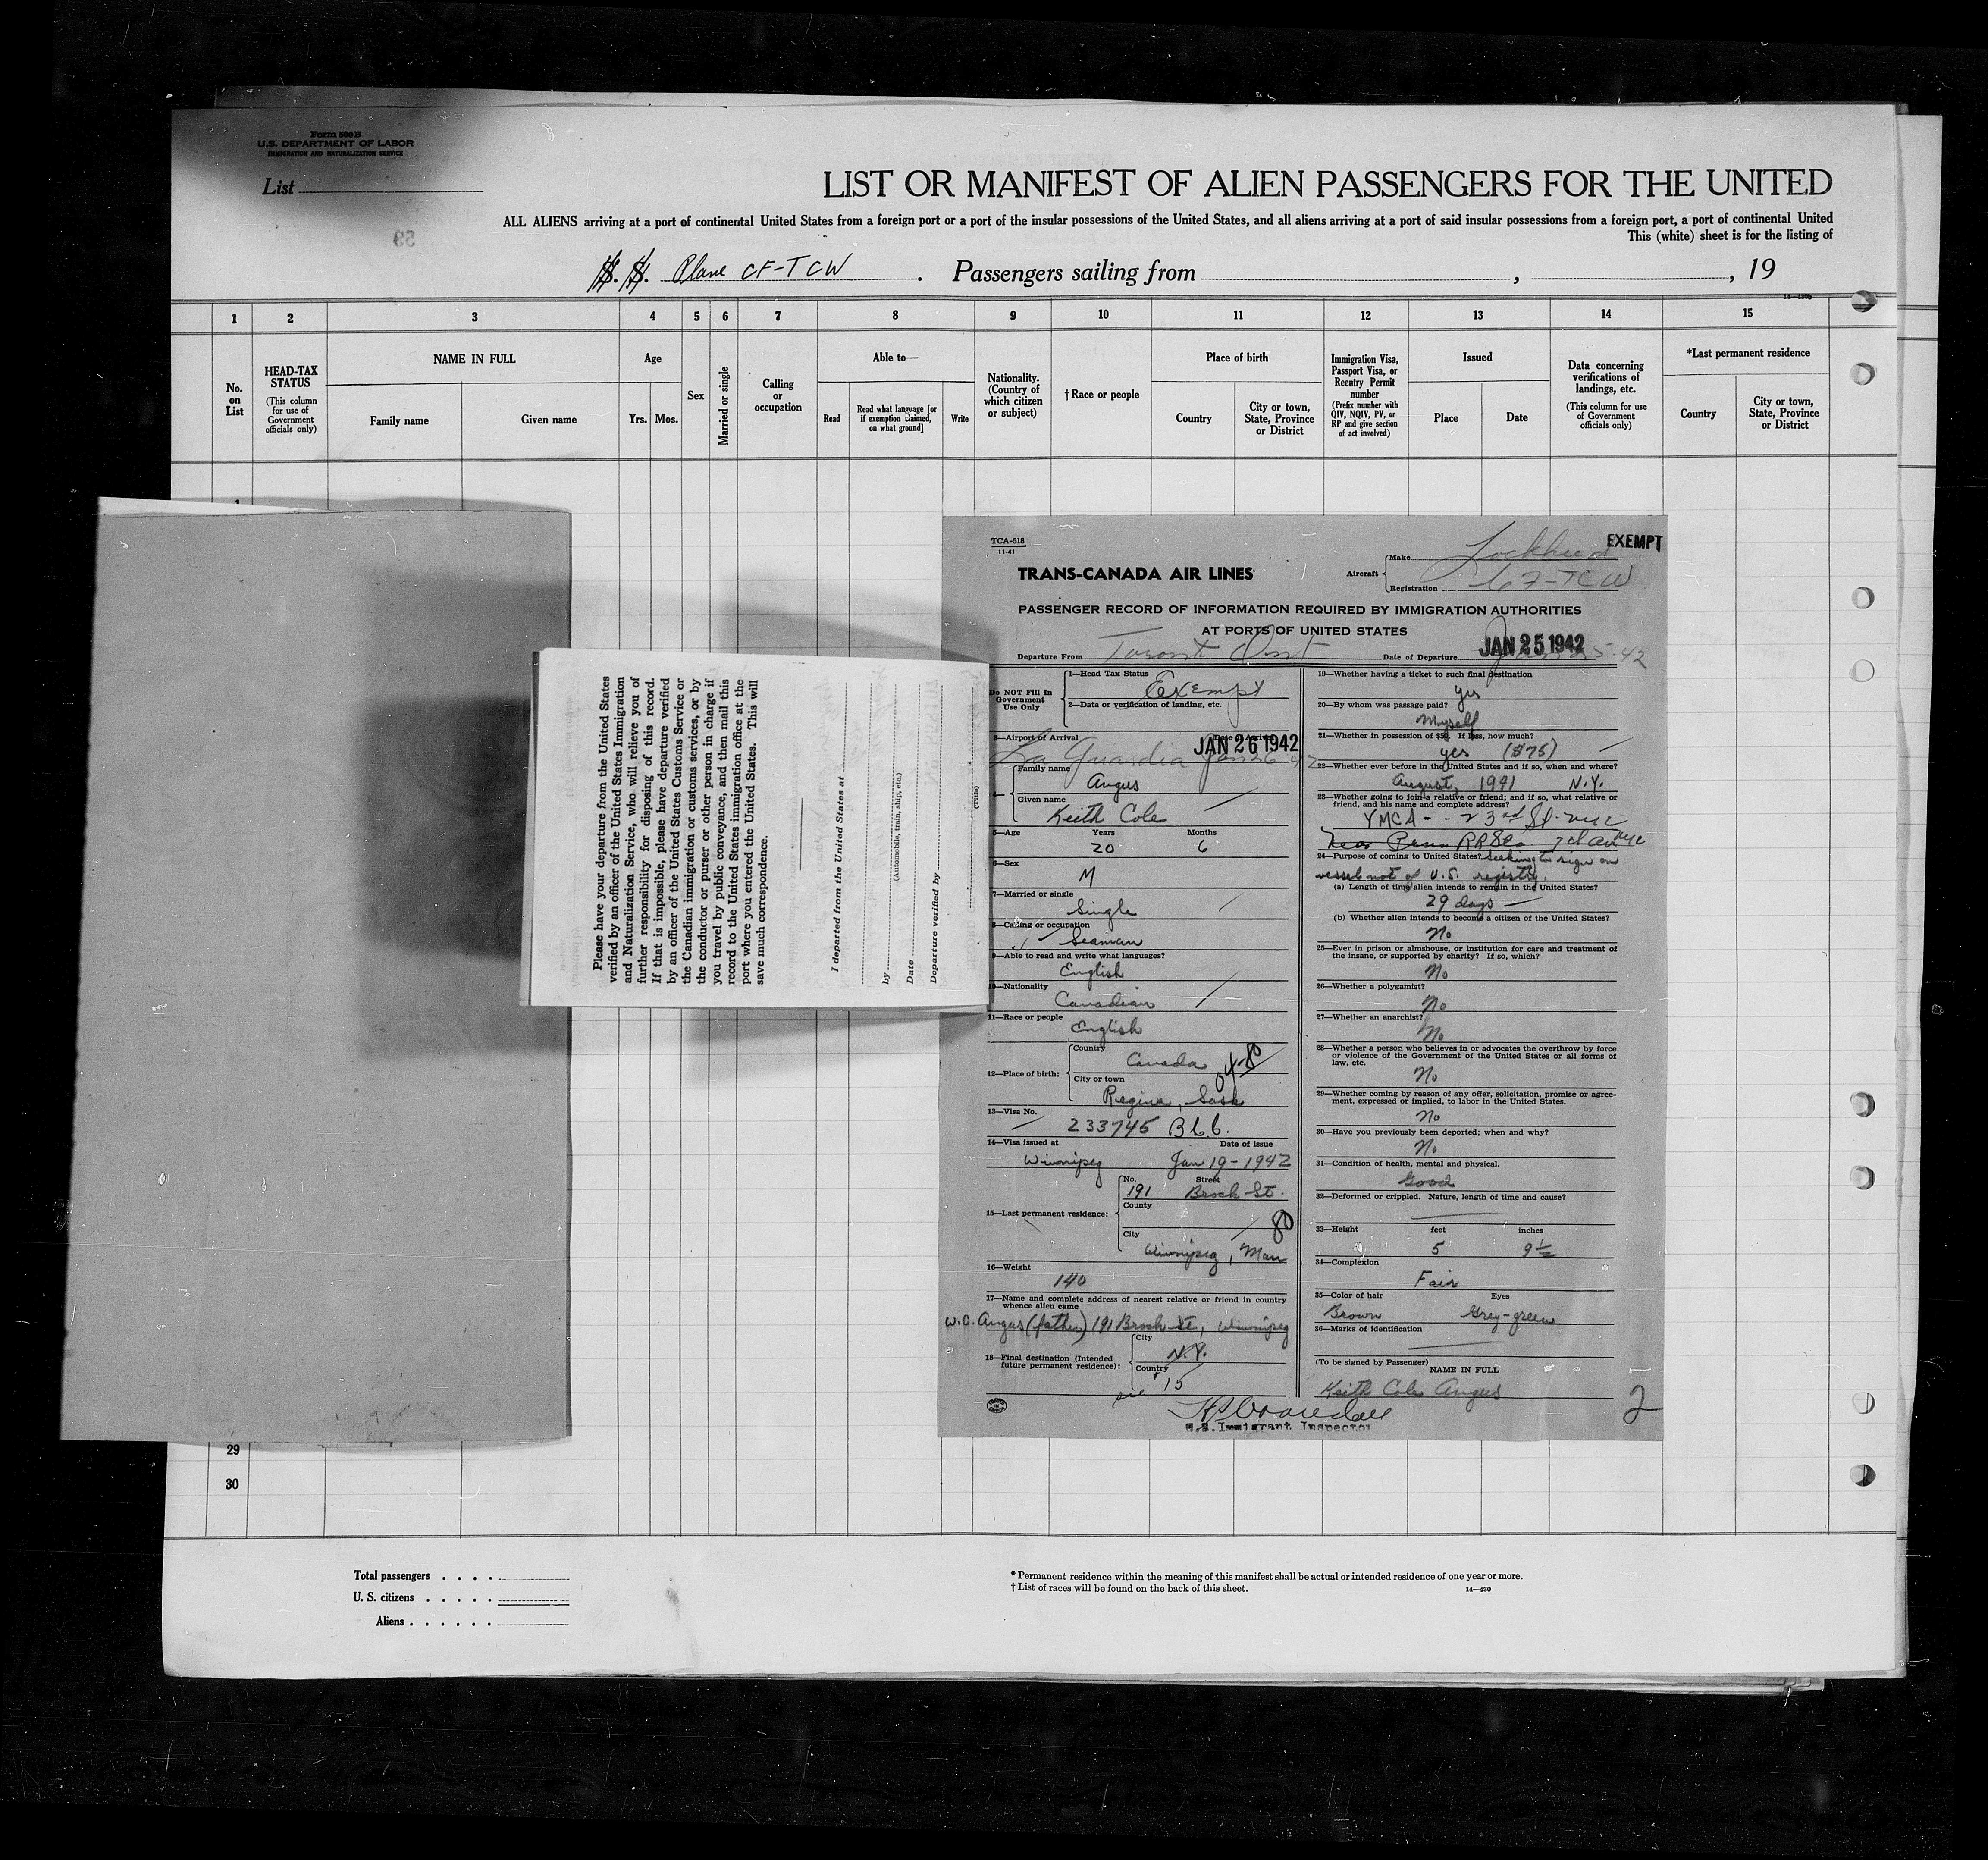 Form 500 B
U.S. DEPARTMENT OF LABOR
IMMIGRATION AND NATURALIZATION SERVICE
List
LIST OR MANIFEST OF ALIEN PASSENGERS FOR THE UNITED
ALL ALIENS arriving at a port of continental United States from a foreign port or a port of the insular possessions of the United States, and all aliens arriving at a port of said insular possessions from a foreign port, a port of continental United
This (white) sheet is for the listing of
59
S. S. Plane CF-TCW . Passengers sailing from , , 19
1 2 3 4 5 6 7 8 9 10 11 12 13 14 15
No. on List
HEAD-TAX STATUS
(This column for use of Government officials only)
NAME IN FULL
Family name
Given name
Age
Yrs. Mos.
Sex
Married or single
Calling or occupation
Able to—
Read
Read what language [or if exemption claimed, on what ground]
Write
Nationality. (Country of which citizen or subject)
† Race or people
Place of birth
Country
City or town, State, Province or District
Immigration Visa, Passport Visa, or Reentry Permit number
(Prefix number with QIV, NQIV, PV, or RP and give section of act involved)
Issued
Place
Date
Data concerning verifications of landings, etc.
(This column for use of Government officials only)
*Last permanent residence
Country
City or town, State, Province or District
Please have your departure from the United States
verified by an officer of the United States Immigration
and Naturalization Service, who will relieve you of
further responsibility for disposing of this record.
If that is impossible, please have departure verified
by an officer of the United States Customs Service or
the Canadian immigration or customs services, or by
the conductor or purser or other person in charge if
you travel by public conveyance, and then mail this
record to the United States immigration office at the
port where you entered the United States. This will
save much correspondence.
I departed from the United States at
by
(Automobile, train, ship, etc.)
Date
Departure verified by
(Title)
TCA-518
11-41
EXEMPT
TRANS-CANADA AIR LINES
Aircraft
Make Lockheed
Registration CF-TCW
PASSENGER RECORD OF INFORMATION REQUIRED BY IMMIGRATION AUTHORITIES
AT PORTS OF UNITED STATES
JAN 25 1942
Departure From Toronto Ont
Date of Departure Jan 25-42
Do NOT Fill In Government Use Only
1—Head Tax Status Exempt
2—Data or verification of landing, etc.
3—Airport of Arrival La Guardia
JAN 26 1942
Family name Angus
Given name Keith Cole
5—Age Years 20 Months 6
6—Sex M
7—Married or single Single
8—Calling or occupation Seaman
9—Able to read and write what languages? English
10—Nationality Canadian
11—Race or people English
12—Place of birth:
Country Canada
04-80
City or town Regina, Sask
13—Visa No. 233745 B.C.C.
14—Visa issued at Winnipeg
Date of issue Jan 19-1942
15—Last permanent residence:
No. 191 Street Brock St.
County
80
City Winnipeg, Man
16—Weight 140
17—Name and complete address of nearest relative or friend in country whence alien came
W.C. Angus (father) 191 Brock St., Winnipeg
18—Final destination (Intended future permanent residence):
City N.Y.
Country
see #15
19—Whether having a ticket to such final destination
yes
20—By whom was passage paid?
Myself
21—Whether in possession of $50. If less, how much?
yes ($75)
22—Whether ever before in the United States and if so, when and where?
August, 1941 N.Y.
23—Whether going to join a relative or friend; and if so, what relative or
friend, and his name and complete address?
YMCA - 23rd St. NYC
Near Penn RR Sta. 7th Av NYC
24—Purpose of coming to United States? Seeking to sign on
vessel not of U.S. registry.
(a) Length of time alien intends to remain in the United States?
29 days
(b) Whether alien intends to become a citizen of the United States?
No
25—Ever in prison or almshouse, or institution for care and treatment of
the insane, or supported by charity? If so, which?
No
26—Whether a polygamist?
No
27—Whether an anarchist?
No
28—Whether a person who believes in or advocates the overthrow by force
or violence of the Government of the United States or all forms of
law, etc.
No
29—Whether coming by reason of any offer, solicitation, promise or agree-
ment, expressed or implied, to labor in the United States.
No
30—Have you previously been deported; when and why?
No
31—Condition of health, mental and physical.
Good
32—Deformed or crippled. Nature, length of time and cause?
33—Height feet 5 inches 9 1/2
34—Complexion
Fair
35—Color of hair Brown Eyes Grey-green
36—Marks of identification
(To be signed by Passenger) NAME IN FULL
Keith Cole Angus
2
U.S. Immigrant Inspector
29
30
Total passengers
U. S. citizens
Aliens
* Permanent residence within the meaning of this manifest shall be actual or intended residence of one year or more.
† List of races will be found on the back of this sheet.
14—430